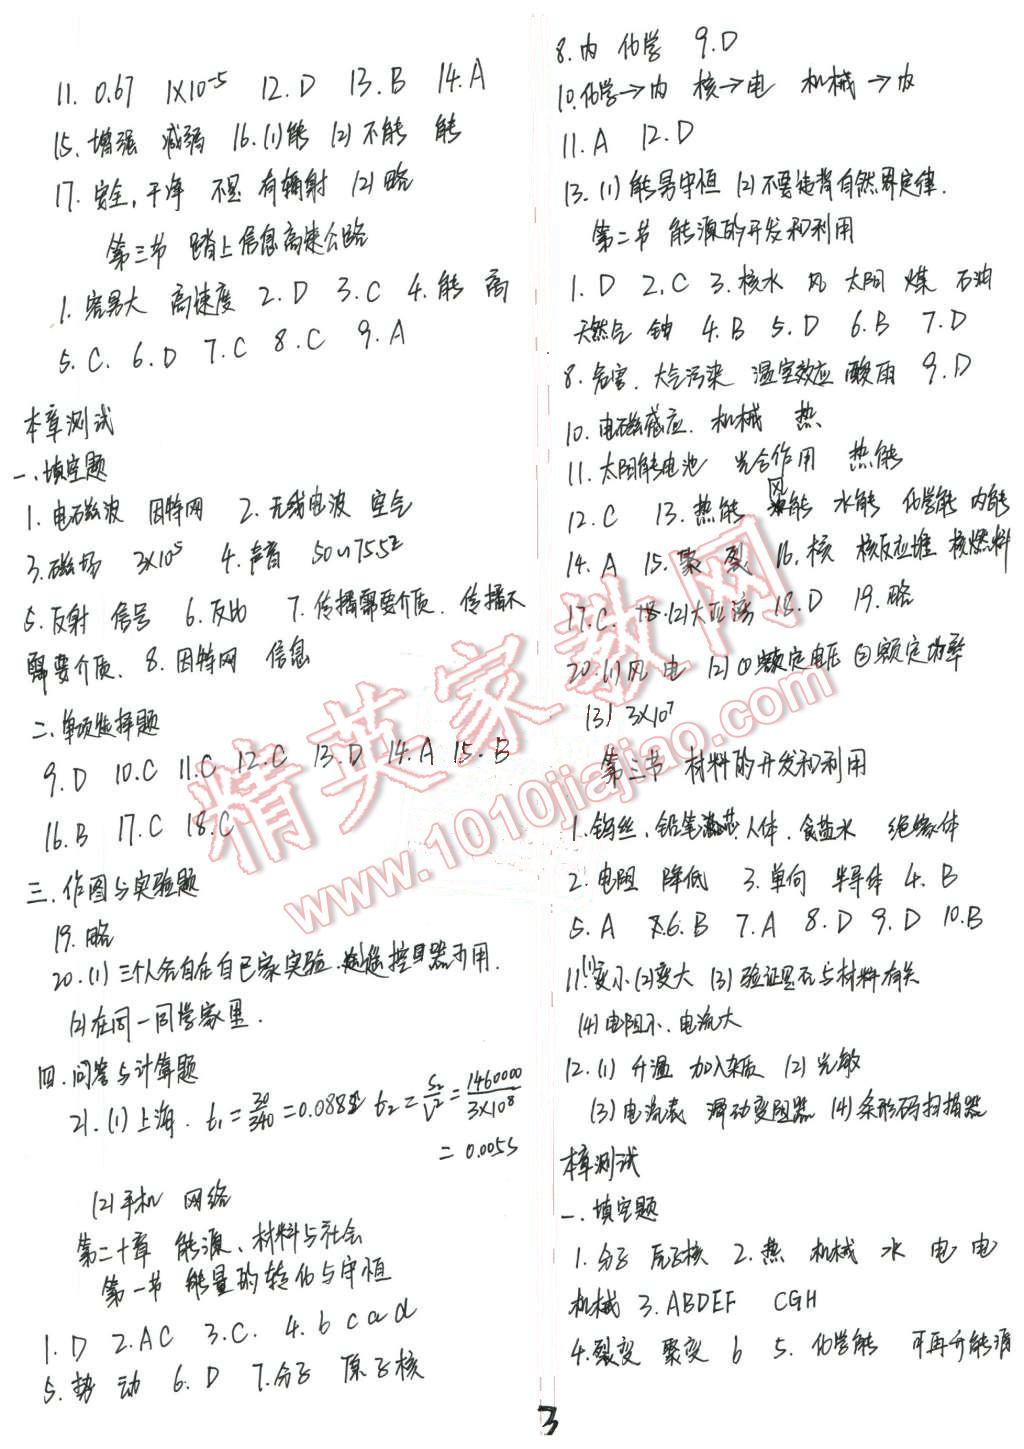 11. 0.67 1×10⁻⁵ 12. D 13. B 14. A
15. 增强 减弱 16. (1)能 (2)不能 能
17. 安全,干净 不足 有辐射 (2)略
第三节 踏上信息高速公路
1. 容易大 高速度 2. D 3. C 4. 能 高
5. C. 6. D 7. C 8. C 9. A
本章测试
一、填空题
1. 电磁波 因特网 2. 无线电波 空气
3. 磁场 3×10⁵ 4. 声音
5. 反射 信号 6. 反比 7. 传播需要介质. 传播不
需要介质. 8. 因特网 信息
二、单项选择题
9. D 10. C 11. C 12. C 13. D 14. A 15. B
16. B 17. C 18. C
三、作图与实验题
19. 略
20. (1) 三个人各自在自己家实验. 遥控器可用.
(2) 在同一同学家里.
四、问答与计算题
21. (1) 上海. t₁=30/340=0.088s t₂=S₂/V²=1460000/3×10⁸
=0.005s
(2) 手机 网络
第二十章 能源、材料与社会
第一节 能量的转化与守恒
1. D 2. AC 3. C. 4. b c a d
5. 势 动 6. D 7. 分子 原子核
8. 内 化学 9. D
10. 化学→内 核→电 机械→内
11. A 12. D
13. (1) 能易守恒 (2) 不要违背自然界定律.
第二节 能源的开发和利用
1. D 2. C 3. 核水 风 太阳 煤 石油
天然气 铀 4. B 5. D 6. B 7. D
8. 危害. 大气污染 温室效应 酸雨 9. D
10. 电磁感应. 机械 热
11. 太阳能电池 光合作用 热能
12. C 13. 热能 风能 水能 化学能 内能
14. A 15. 聚 裂 16. 核 核反应堆 核燃料
17. C. 18. (2)大亚湾 18. D 19. 略
20. (1) 风 电 (2) ①额定电压 ②额定功率
(3) 3×10⁷
第三节 材料的开发和利用
1. 钨丝、铅笔芯、人体、食盐水 绝缘体
2. 电阻 降低 3. 单向 半导体 4. B
5. A 6. B 7. A 8. D 9. D 10. B
11. (1)变小 (2)变大 (3) 验证是否与材料有关
(4) 电阻小、电流大
12. (1) 升温 加入杂质 (2) 光敏
(3) 电流表 滑动变阻器 (4) 条形码扫描器
本章测试
一、填空题
1. 分子 原子核 2. 热 机械 水 电 电
机械 3. ABDEF CGH
4. 裂变 聚变 6 5. 化学能 不可再升能源
3
精英家教网
www.1010jiajiao.com